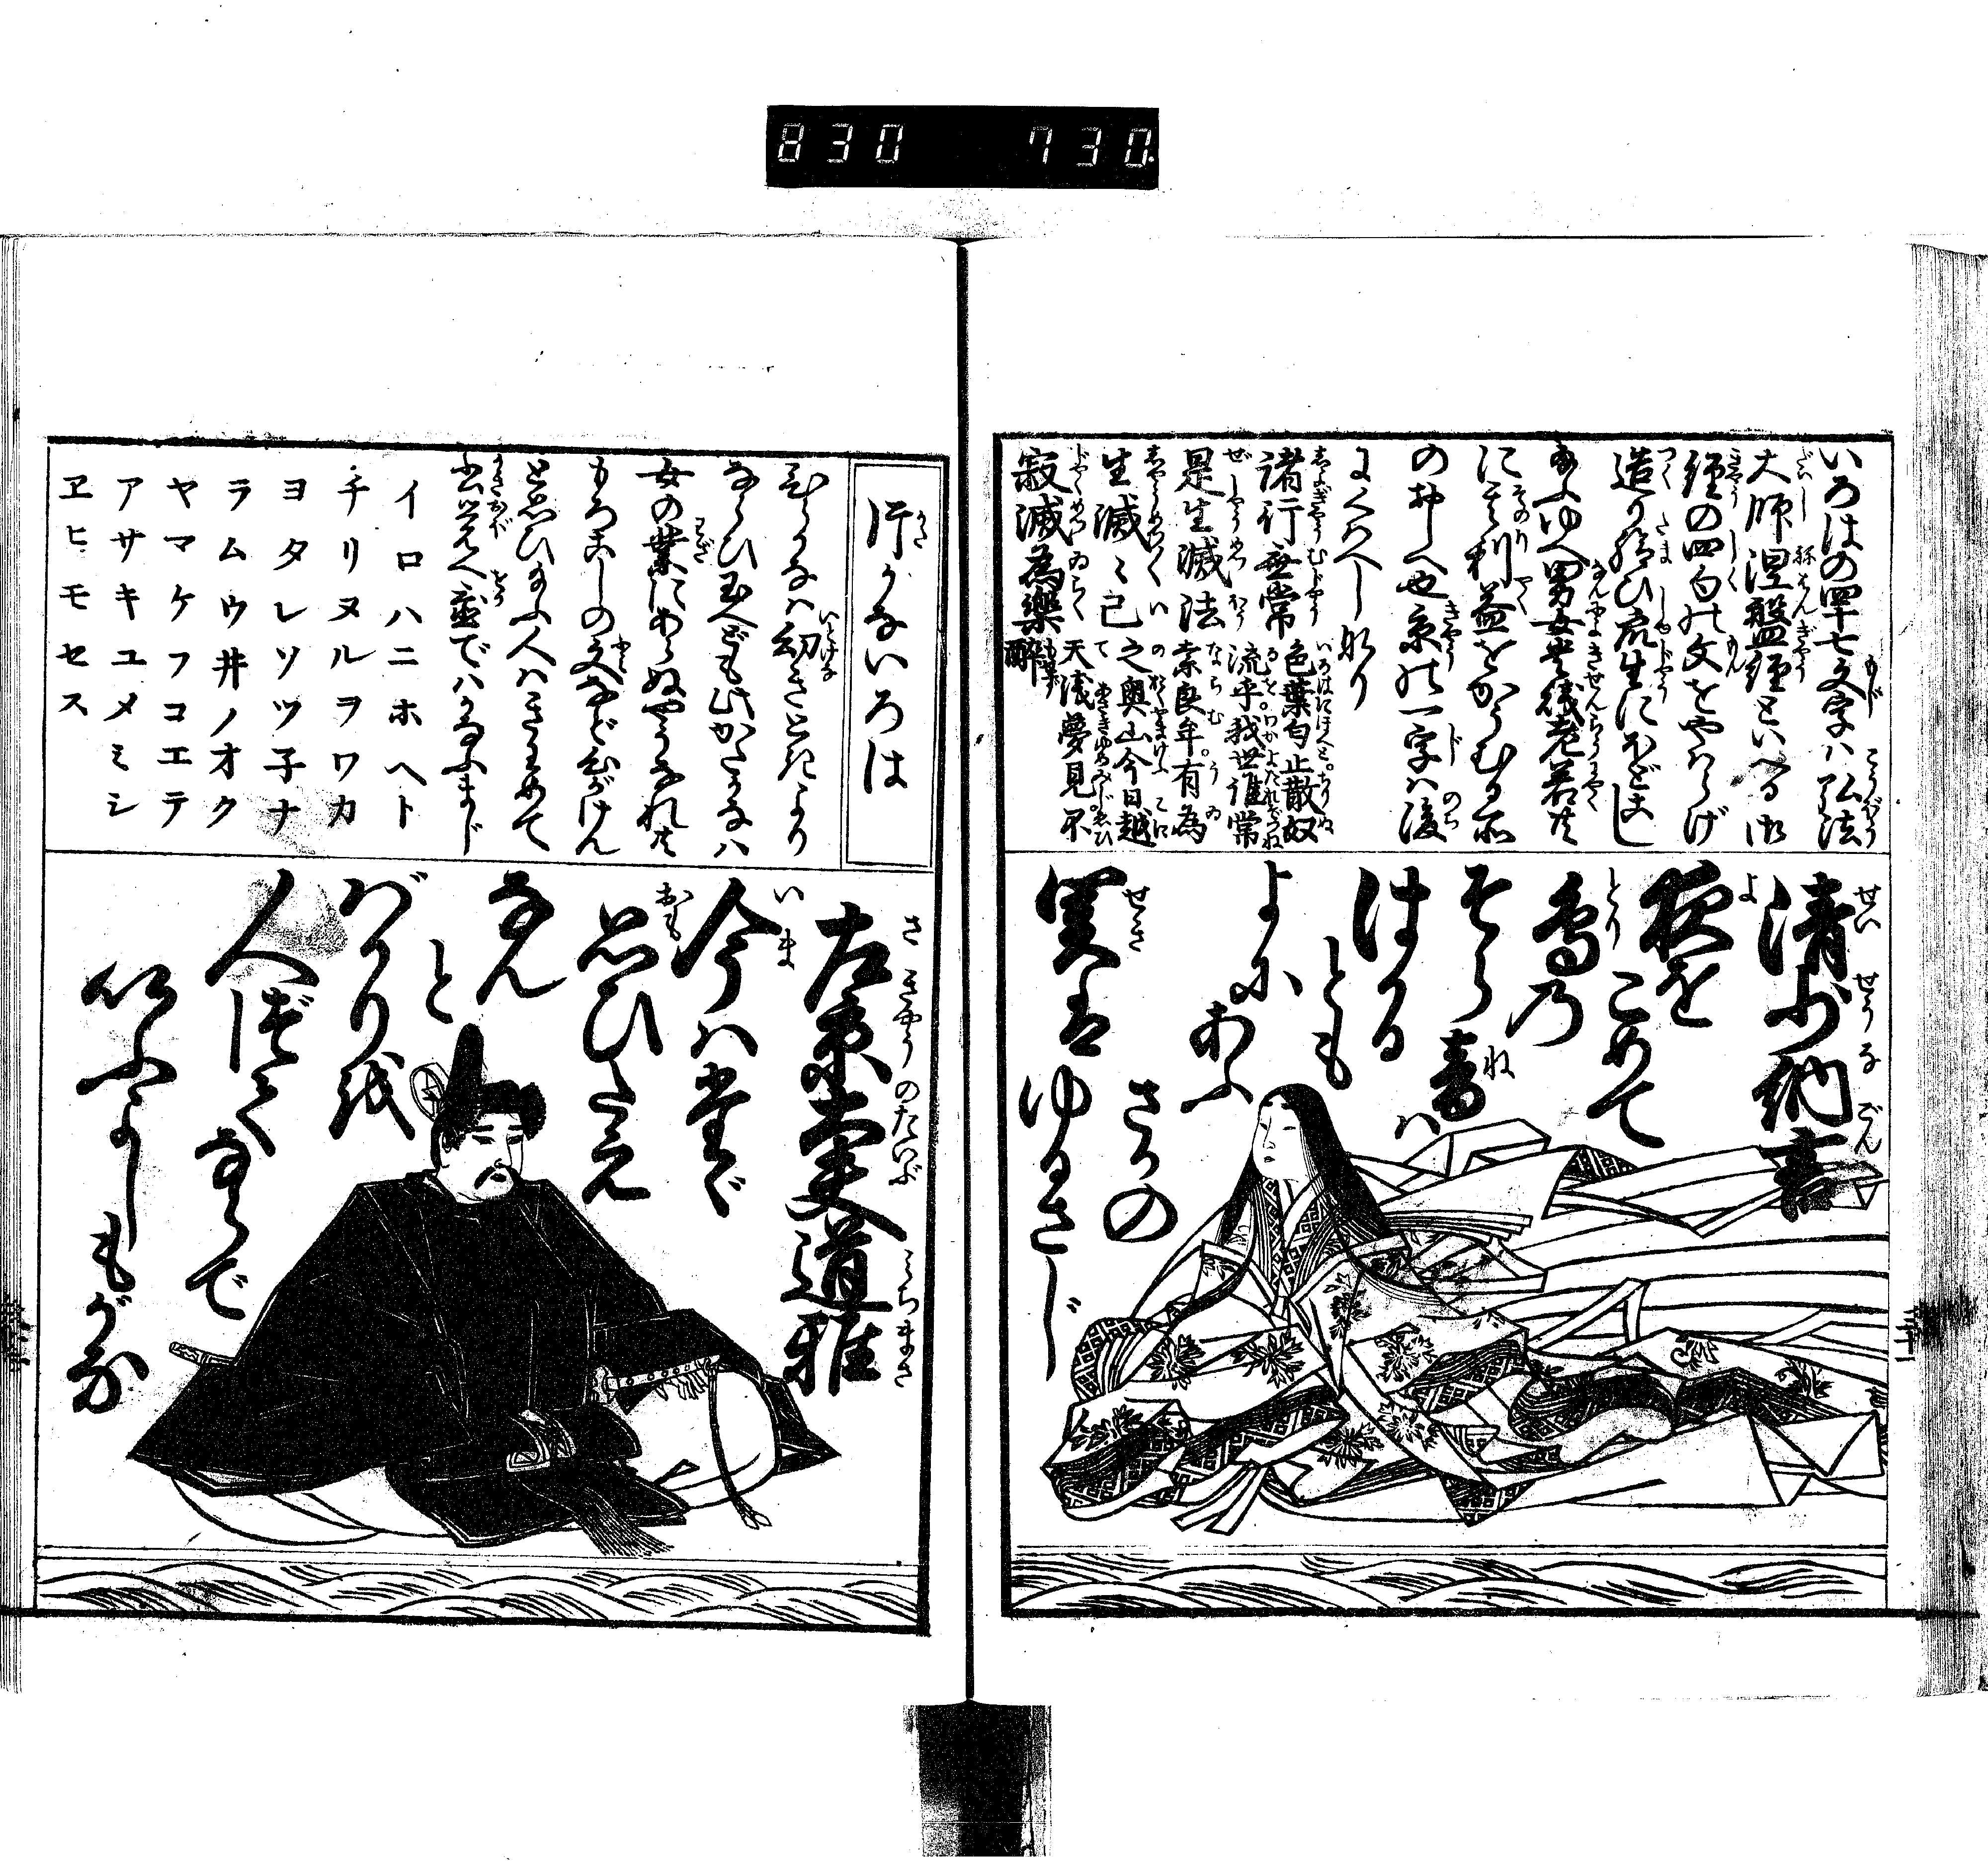 830 730.
いろはの四十七文字ハ弘法
大師涅槃経といへる御
経の四句の文をやハらげ
造り給ひ衆生にほどこし
給ふゆへ男女貴賤老若共
に其利益をかうむる所
のおしへ也京の一字ハ後
にくハへし也
諸行無常 色葉匂止散奴
是生滅法 流乎我世誰常
生滅々已 奈良牟有為
寂滅為楽 之奥山今日越
て 天浅夢見不
酔
清少納言
夜を
こめて
鳥乃
そら
音ハ
はかる
とも
よに
あふ
さかの
関は
ゆるさじ
三十一
片かないろは
ひらかなハ幼きときより
ならひ玉へどもかたかなハ
女の業にあらぬやうなれ共
もろこしの文などひがけん
と思ひ玉ふ人ハきわめて
バかなふまじ
イロハニホヘト
チリヌルヲワカ
ヨタレソツ子ナ
ラムウ井ノオク
ヤマケフコエテ
アサキユメミシ
ヱヒモセス
左京大夫道雅
今ハたゞ
思ひたえ
なん
と
ばかり越
人づて
ならで
いふよし
もがな